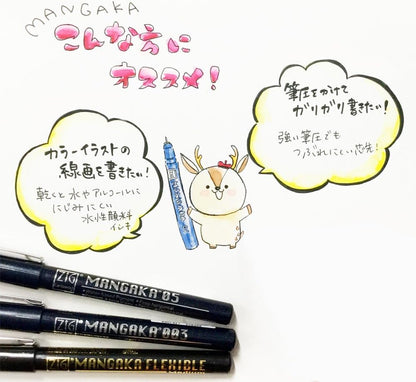 MANGAKA
こんな方に
オススメ!
筆圧をかけて
ガリガリ書きたい!
強い筆圧でも
つぶれにくい芯先!
カラーイラストの
線画を書きたい!
乾くと水やアルコールに
にじみにくい
水性顔料
インキ
ZIG MANGAKA 05
ZIG MANGAKA 003
ZIG MANGAKA FLEXIBLE